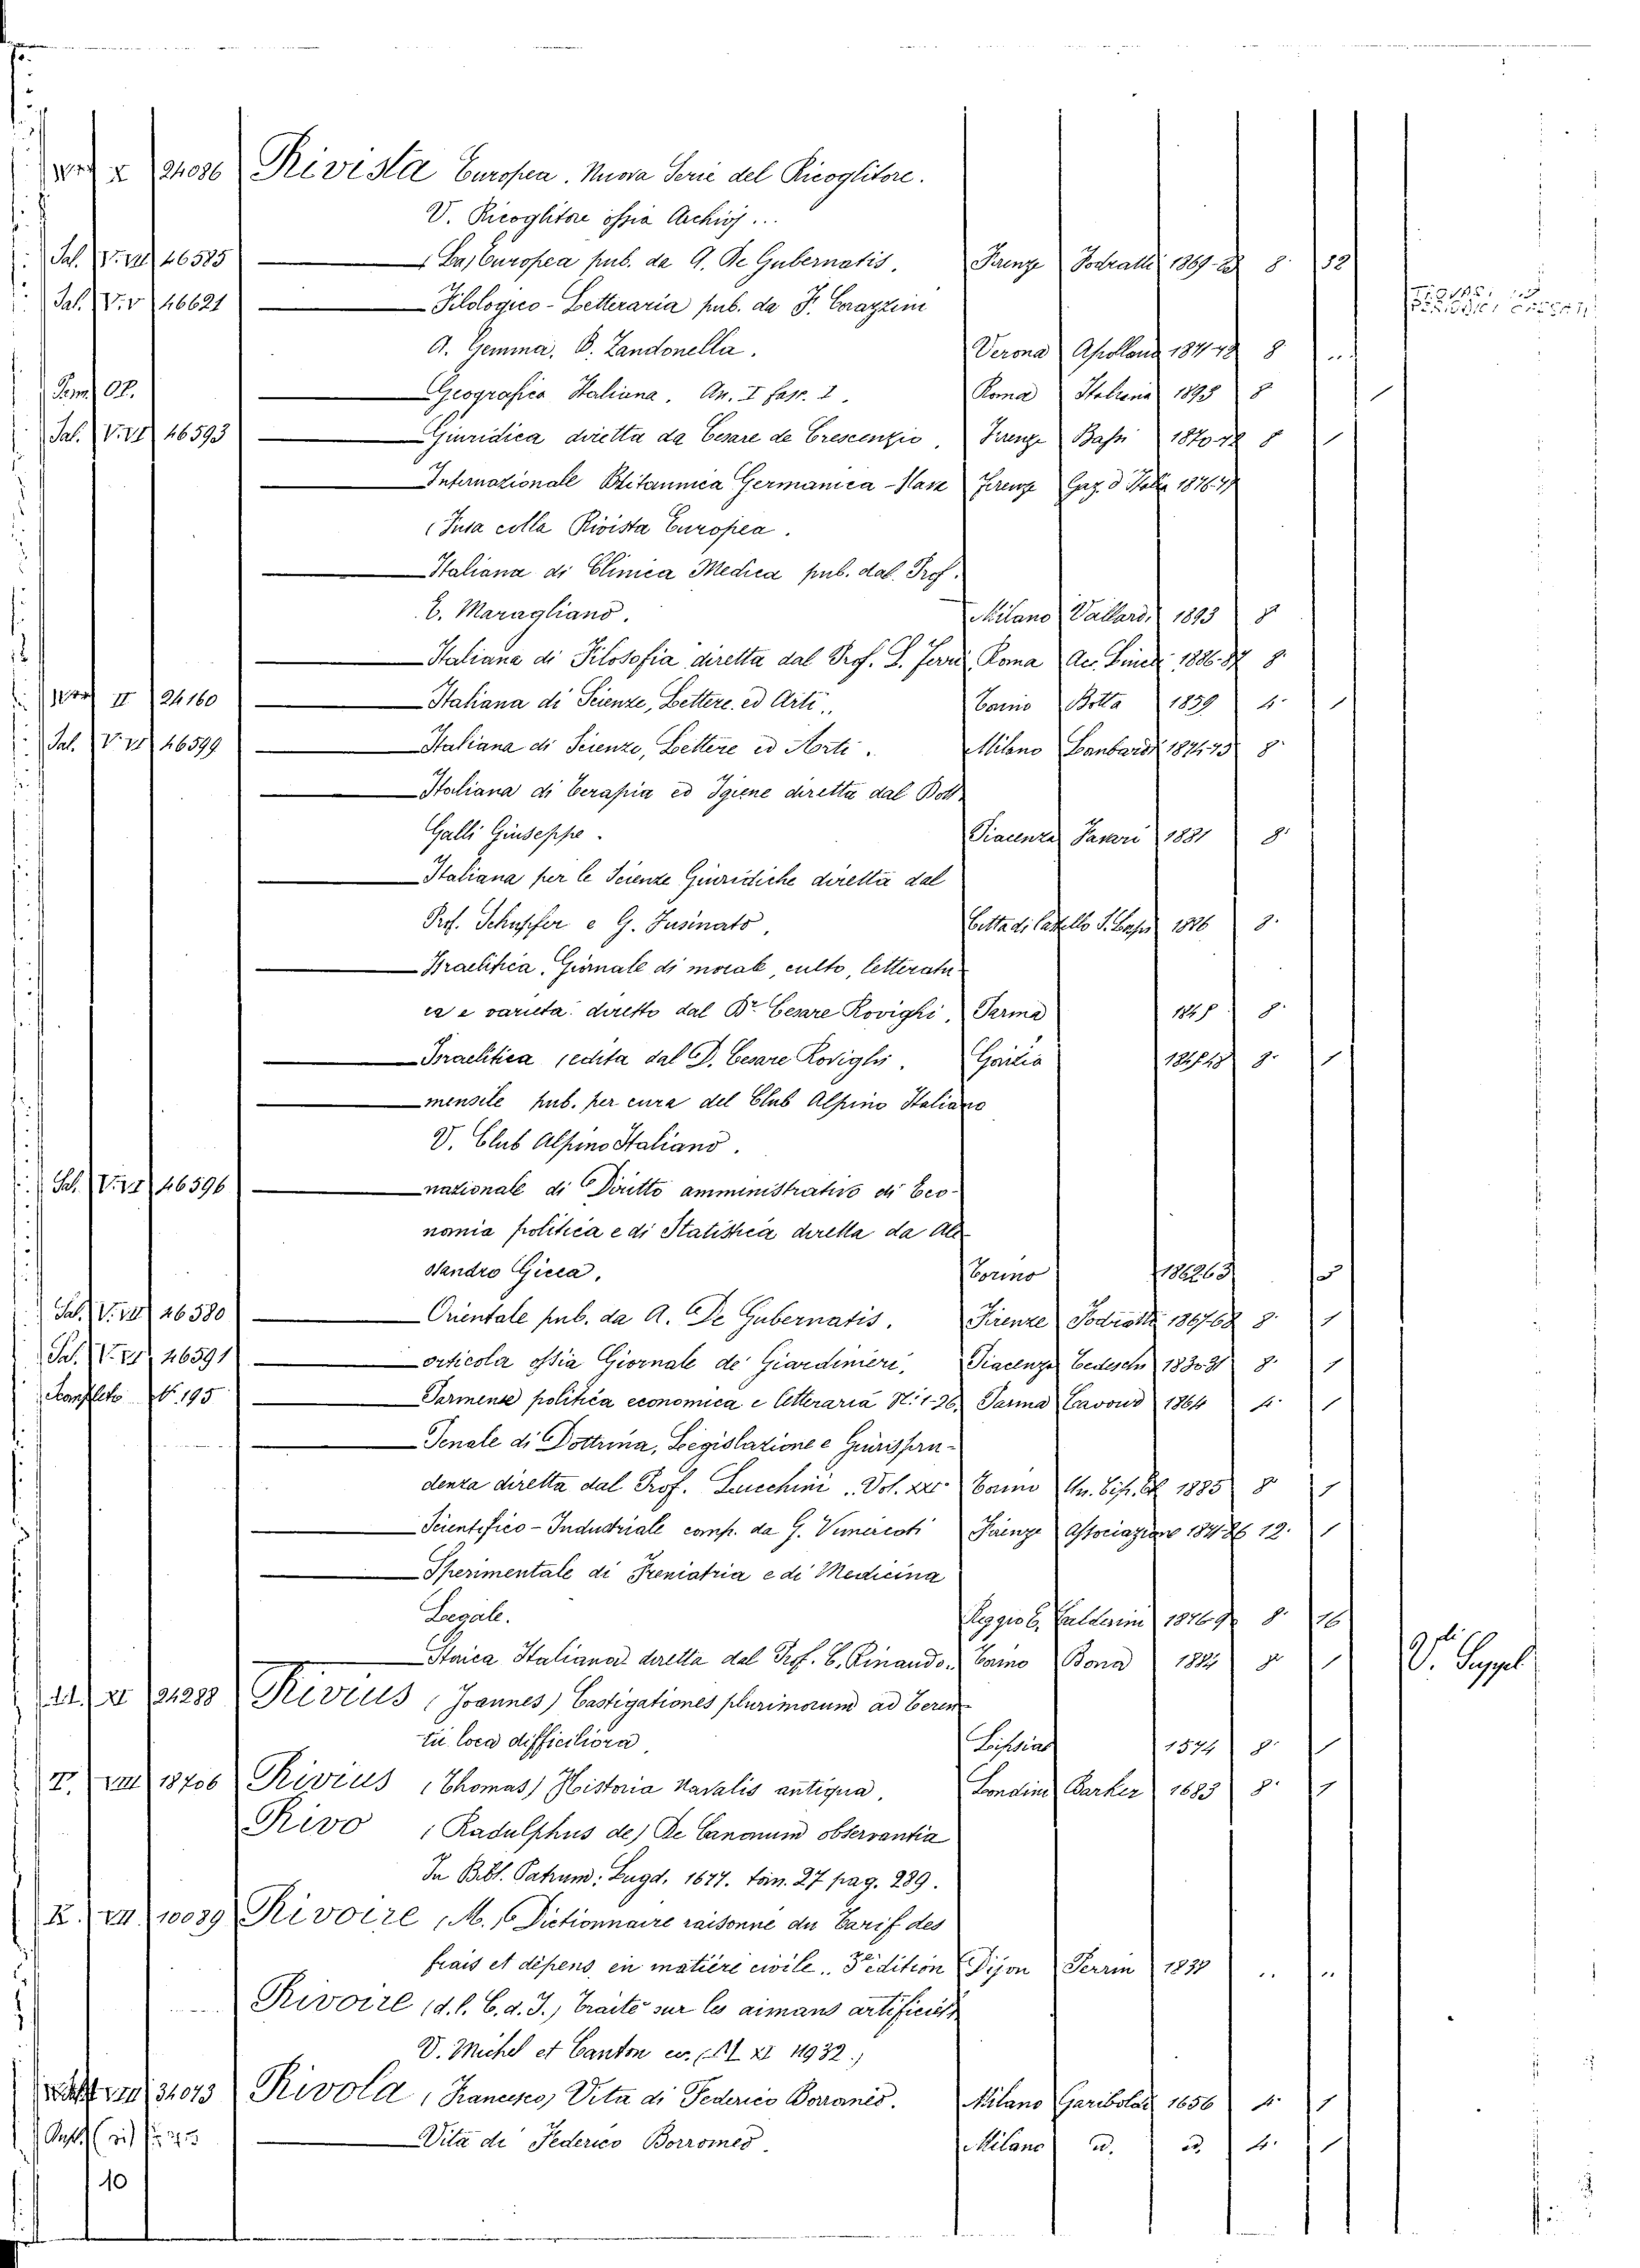 24086 Rivista Europea. Nuova Serie del Ricoglitore.
V. Ricoglitore ossia Archivj...
Sal. V. VII 46585 — (La) Europea pub. da A. De Gubernatis. Firenze 1869- 8. 32
Sal. V. V 46621 — Filologico-Letteraria pub. da F. Corazzini
A. Gemma, B. Zandonella. Verona Apollonio 8 ..
Sem. Op. — Geografica Italiana. An. I fasc. I. Roma Italiana 1893 8 1
Sal. V. VI 46593 — Giuridica diretta da Cesare de Crescenzio. Firenze 1870-72 8 1
— Internazionale Britannica Germanica - Slava Firenze Gaz. d'Italia 1876-77
(Fusa colla Rivista Europea.
— Italiana di Clinica Medica pub. dal Prof.
E. Maragliano. Milano Vallardi 1893 8
— Italiana di Filosofia diretta dal Prof. L. Ferri Roma Ac. Lincei 1886-87 8
II 24160 — Italiana di Scienze, Lettere ed Arti. Torino Botta 1859 4. 1
Sal. V. VI 46599 — Italiana di Scienze, Lettere ed Arti. Milano Lombardi 1874-75 8
— Italiana di Terapia ed Igiene diretta dal Dott.
Galli Giuseppe. Piacenza 1881 8.
— Italiana per le Scienze Giuridiche diretta dal
Prof. Schupfer e G. Fusinato. Città di Castello S. Lapi 1886 8.
— Israelitica, Giornale di morale, culto, letteratu-
ra e varietà diretto dal Dr. Cesare Rovighi. Parma 8.
— Israelitica (edita dal D. Cesare Rovighi. 8. 1
— mensile pub. per cura del Club Alpino Italiano
V. Club Alpino Italiano.
Sal. V. VI 46596 — nazionale di Diritto amministrativo di Eco-
nomia politica e di Statistica diretta da Ales-
sandro Gicca. Torino 1862-63
Sal. V. VII 46580 — Orientale pub. da A. De Gubernatis. Firenze 1867-68 8. 1
Sal. V. VI 46591 — orticola ossia Giornale de' Giardinieri. Piacenza Tedeschi 1830-31 8. 1
N. 195 — Parmense politica economica e letteraria N. 1-26. Parma 1864 4. 1
— Penale di Dottrina, Legislazione e Giurispru-
denza diretta dal Prof. Lucchini. Vol. XXI Torino Un. Tip. Ed. 1885 8 1
— Scientifico-Industriale comp. da G. Vimercati Firenze Associazione 12. 1
— Sperimentale di Freniatria e di Medicina
Legale. Reggio E. Calderini 8. 16
— Storica Italiana diretta dal Prof. C. Rinaudo. Torino Bona 1884 8. 1 V. Suppl.
XI 24288 Rivius (Joannes) Castigationes plurimorum ad Teren-
tii loca difficiliora. Lipsiae 1574 8.
T. VIII 18706 Rivius (Thomas) Historia Navalis antiqua. Londini Barker 1683 8. 1
Rivo (Radulphus de) De Canonum observantia
In Bibl. Patrum. Lugd. 1677. tom. 27 pag. 289.
K. VII 10089 Rivoire (M.) Dictionnaire raisonné du Tarif des
frais et dépens en matière civile. 3e édition Dijon Perrin .. ..
Rivoire (d. l. C. d. J.) Traité sur les aimans artificiels
V. Michel et Canton ec. 11932.)
34073 Rivola (Francesco) Vita di Federico Borromeo. Milano Gariboldi 1656 4. 1
— Vita di Federico Borromeo. Milano id. id. 4. 1
10